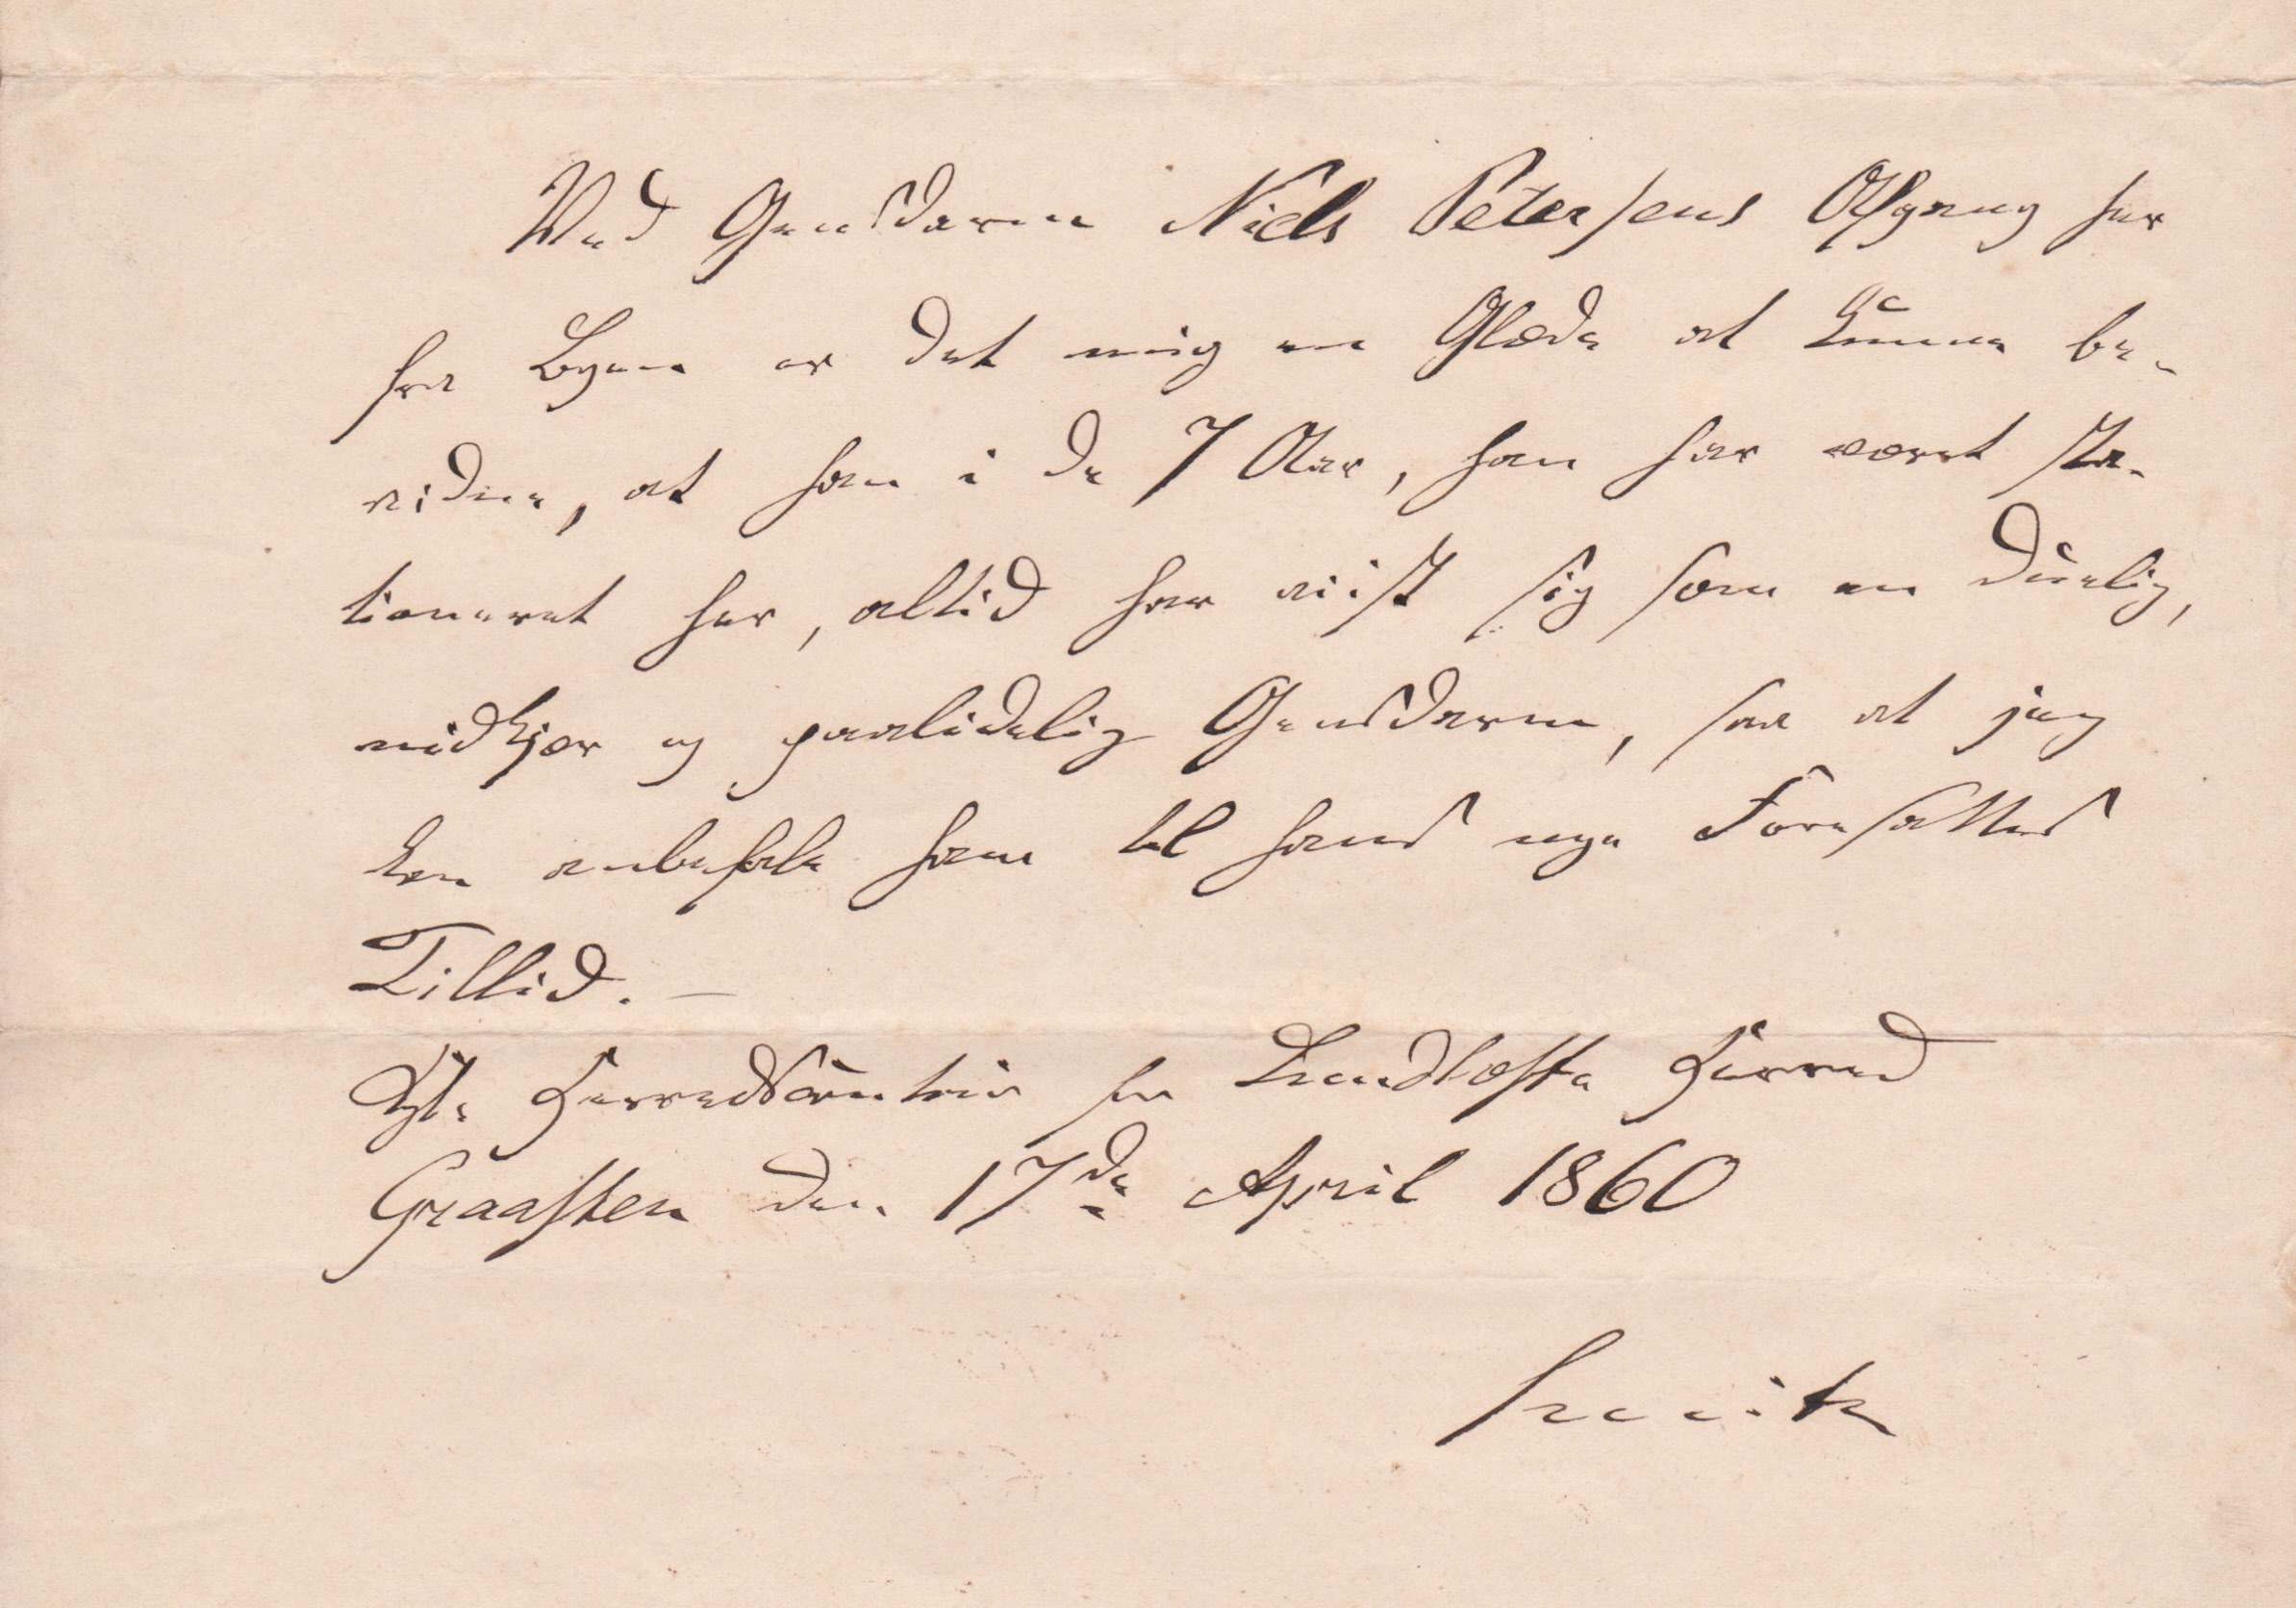 Ved Gensdarm Niels Petersens Afgang her
fra Byen er det mig en Glæde at kunne be-
vidne, at han i de 7 Aar, han har været sta-
tioneret her, altid har viist sig som en duelig,
nidkjær og paalidelig Gensdarm, saa at jeg
kan anbefale ham til hans nye Foresattes
Tillid. —
Kgl. Herredscontoir for Lundtofte Herred
Graasten den 17de April 1860